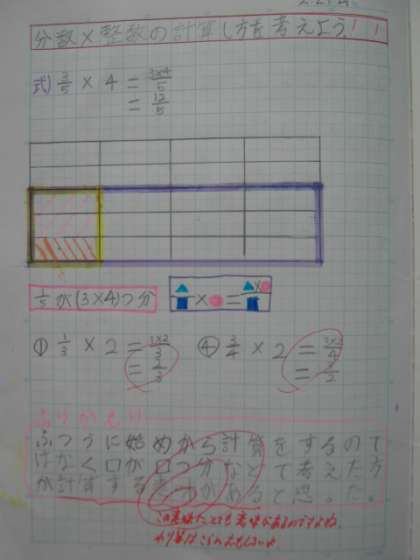 分数×整数の計算し方を考えよう!
式) 3/5 × 4 = 3×4/5
= 12/5
1/5が(3×4)つ分
▲/■ × ● = ▲×●/■
① 1/3 × 2 = 1×2/3
= 2/3
④ 3/4 × 2 = 3×2/4
= 3/2
ふりかえり
ふつうに始めから計算をするので
はなく口が口つ分などて考えた方
が計算する
と思った。